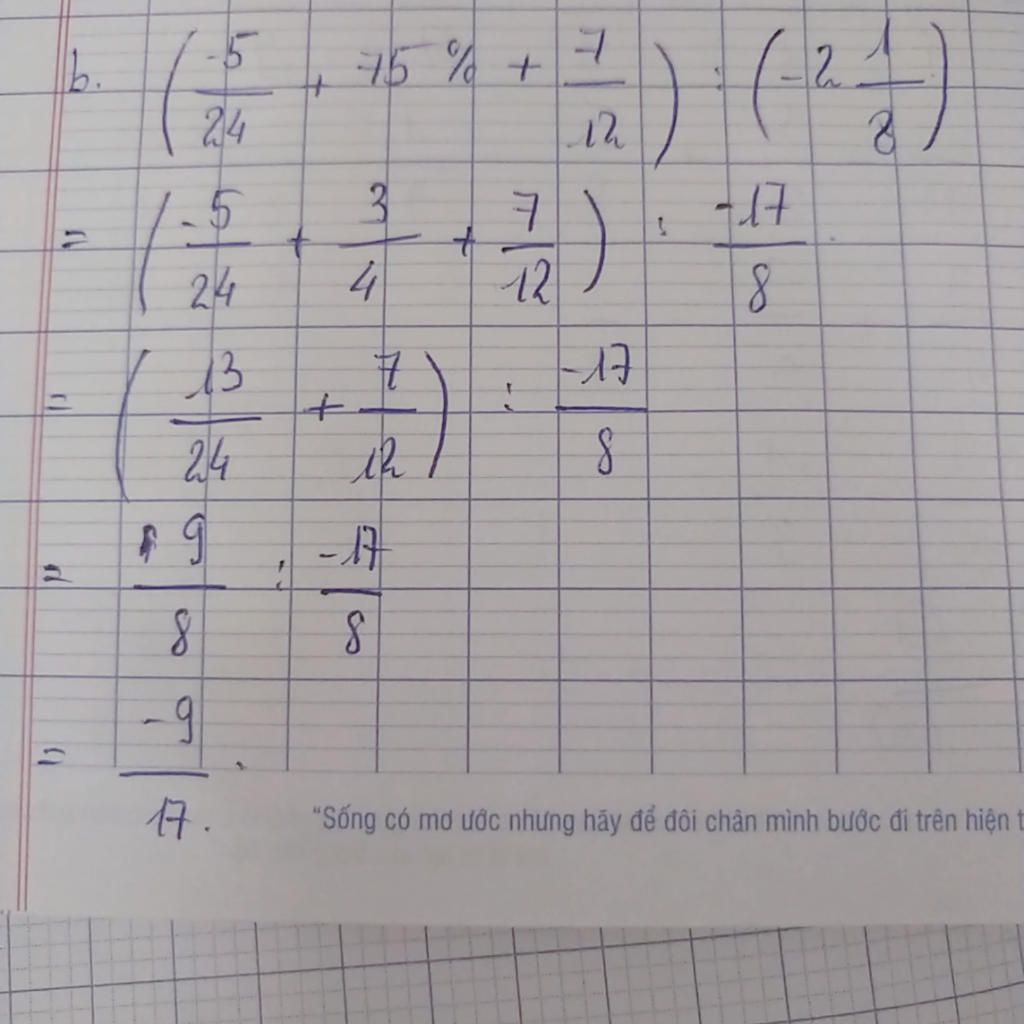 b. (-5/24 + 75% + 7/12) : (-2 1/8)
= (-5/24 + 3/4 + 7/12) : -17/8
= (13/24 + 7/12) : -17/8
= 9/8 : -17/8
= -9/17.
"Sống có mơ ước nhưng hãy để đôi chân mình bước đi trên hiện t